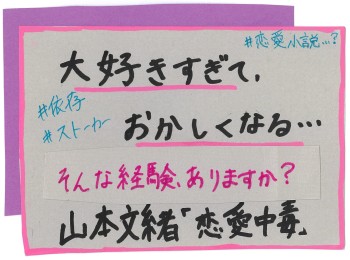 #恋愛小説…?
大好きすぎて、
#依存
#ストーカー
おかしくなる…
そんな経験、ありますか?
山本文緒「恋愛中毒」